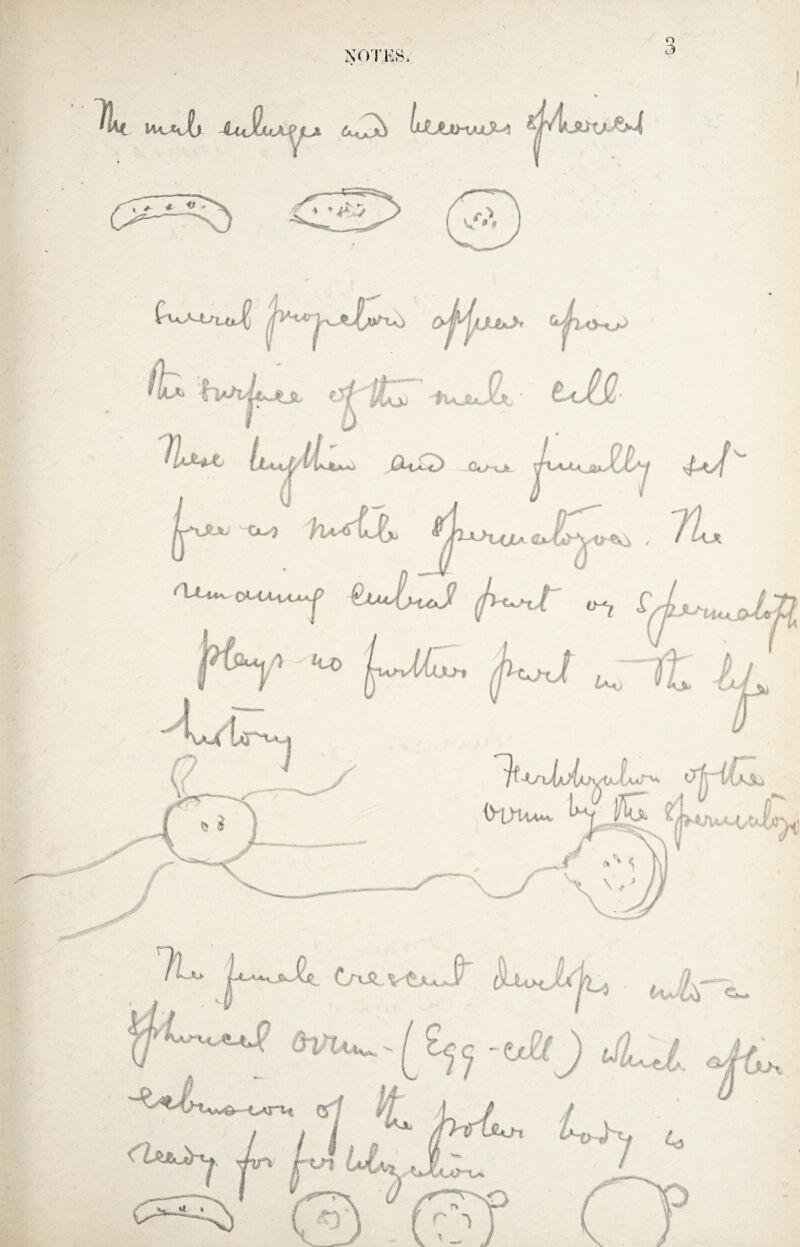 NOTES. 3
The male enlarges and becomes spherical
Several projections appear upon
the surface of the male cell.
These lengthen and are finally set
free as motile spermatozoa. The
remaining central part or Spermatoph
plays no further part in the life
history
Fertilization of the
ovum by the Spermatozo
The female crescent develops into a
Spherical ovum - (Egg-cell) which after
extension of the polar body is
ready for fertilization